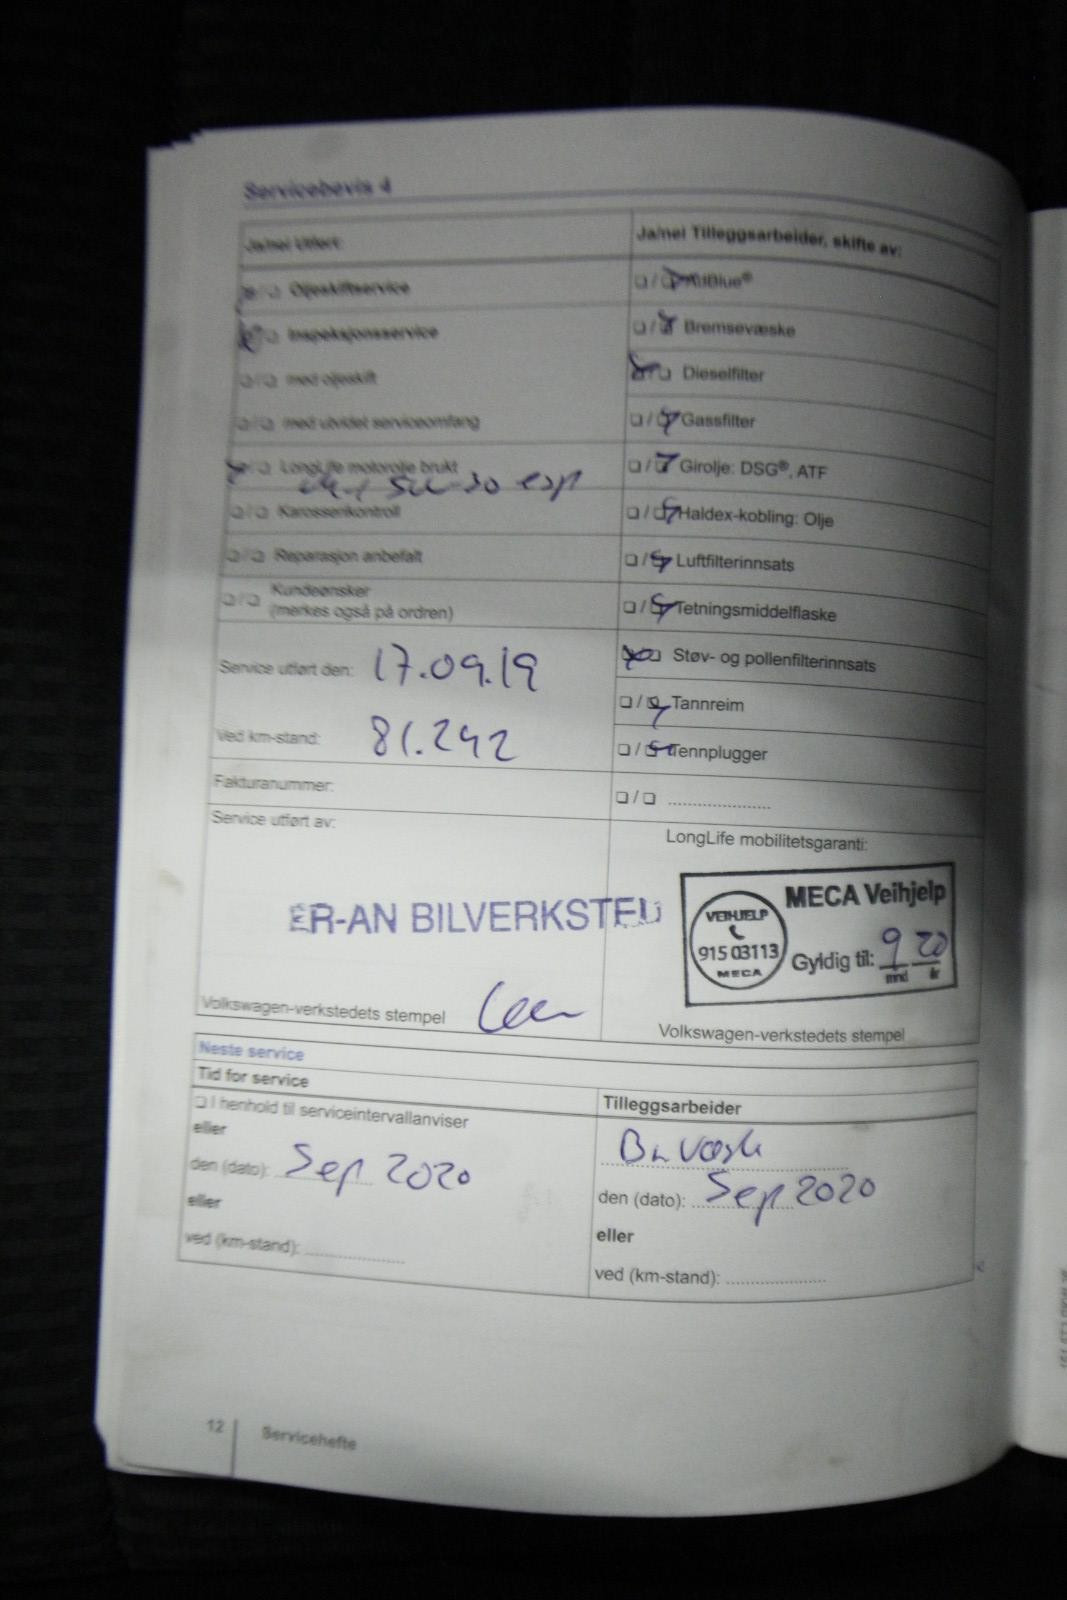 Servicebevis 4
Ja/nei Utført:
Ja/nei Tilleggsarbeider, skifte av:
❏/❏ Oljeskiftservice
❏/❏ AdBlue®
❏/❏ Inspeksjonsservice
❏/❏ Bremsevæske
❏/❏ med oljeskift
❏/❏ Dieselfilter
❏/❏ med utvidet serviceomfang
❏/❏ Gassfilter
❏/❏ LongLife motorolje brukt
❏/❏ Girolje: DSG®, ATF
5W-30 esp
❏/❏ Karosserikontroll
❏/❏ Haldex-kobling: Olje
❏/❏ Reparasjon anbefalt
❏/❏ Luftfilterinnsats
❏/❏ Kundeønsker
(merkes også på ordren)
❏/❏ Tetningsmiddelflaske
Service utført den: 17.09.19
❏/❏ Støv- og pollenfilterinnsats
❏/❏ Tannreim
Ved km-stand: 81.242
❏/❏ Tennplugger
Fakturanummer:
❏/❏ ......................
Service utført av:
LongLife mobilitetsgaranti:
ER-AN BILVERKSTED
VEIHJELP
915 03113
MECA
MECA Veihjelp
Gyldig til: 9 20
mnd år
Volkswagen-verkstedets stempel
Volkswagen-verkstedets stempel
Neste service
Tid for service
Tilleggsarbeider
❏ I henhold til serviceintervallanviser
eller
den (dato): Sep 2020
eller
ved (km-stand): ......................
Br væsk
den (dato): Sep 2020
eller
ved (km-stand): ......................
12
Servicehefte